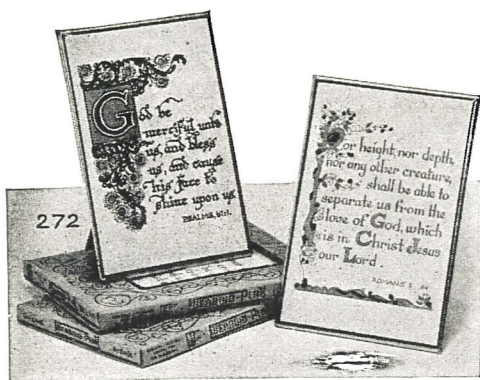 God be
merciful unto
us, and bless
us, and cause
his face to
shine upon us
PSALMS, 67:1.
272
or height, nor depth,
nor any other creature,
shall be able to
separate us from the
love of God, which
is in Christ Jesus
our Lord.
ROMANS 8